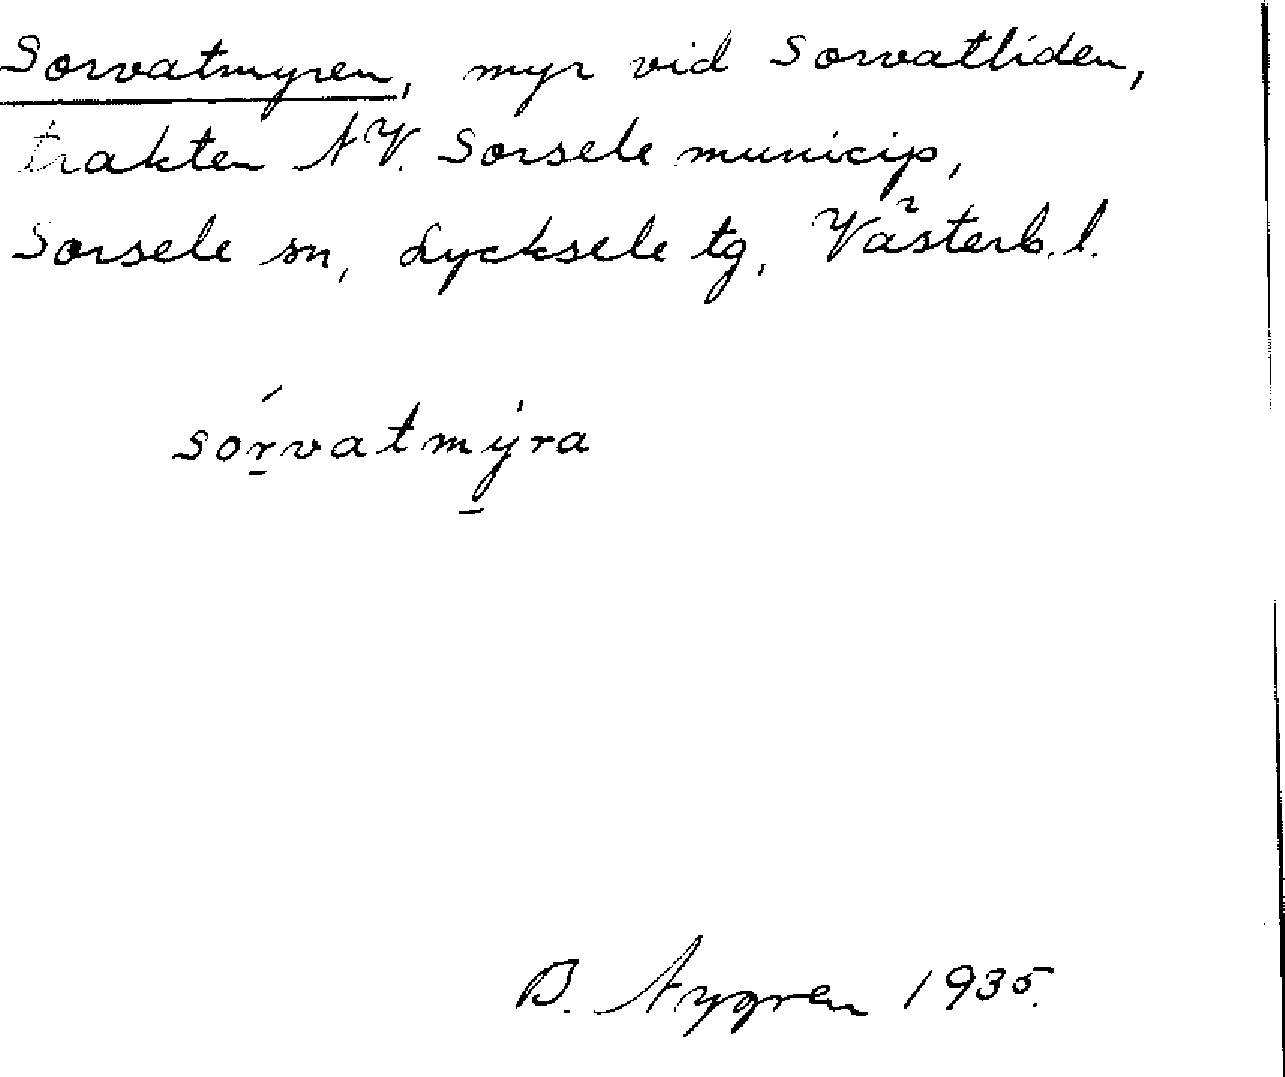 Sorvatmyren, myr vid Sorvatliden,
trakten NV. Sorsele municip,
Sorsele sn, Lycksele tg, Västerb. l.
sórvatmýra
B. Nygren 1935.